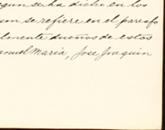 segun se ha dicho en los
que se refiere en el parrafo
lmente dueños de estos
anuel Maria, Jose Joaquin